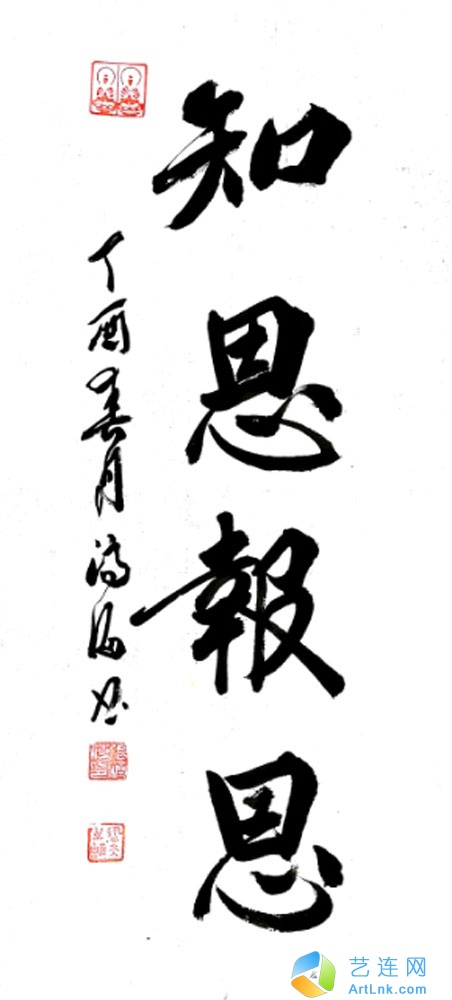 知恩報恩
丁酉春月
艺连网
ArtLnk.com